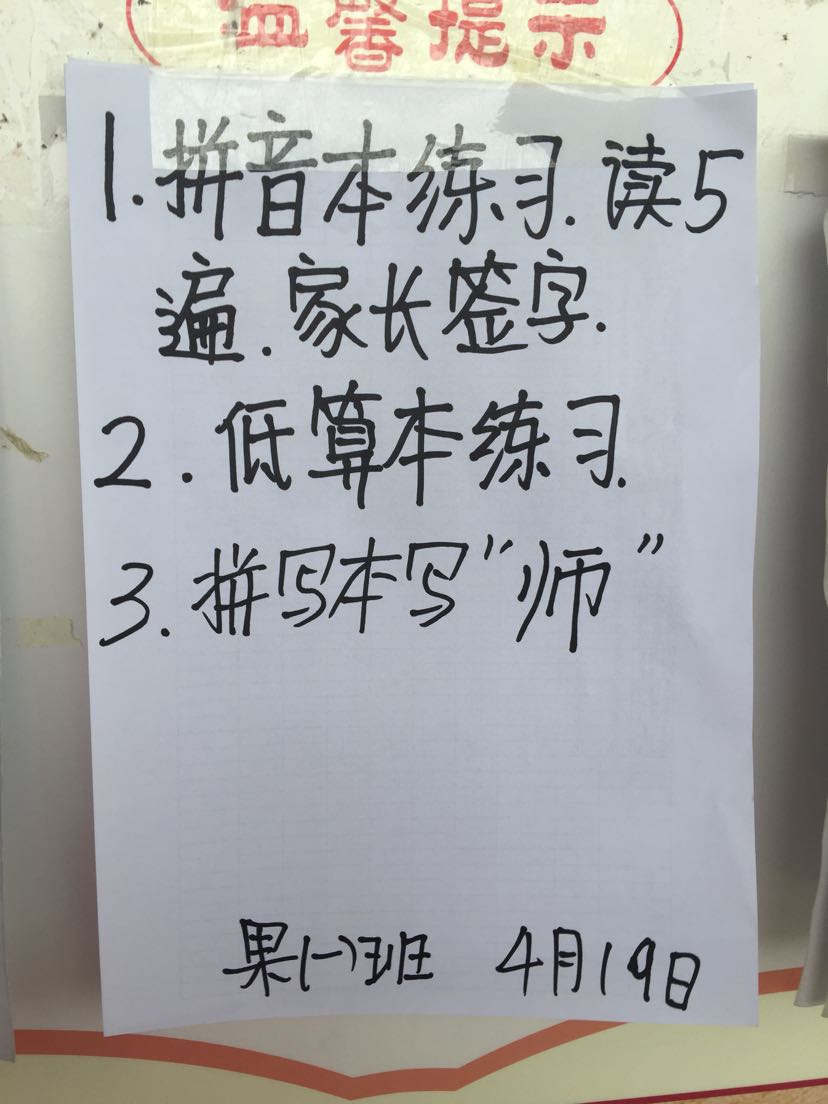 温馨提示
1.拼音本练习.读5
遍.家长签字.
2.低算本练习.
3.拼写本写“师”
果(一)班 4月19日